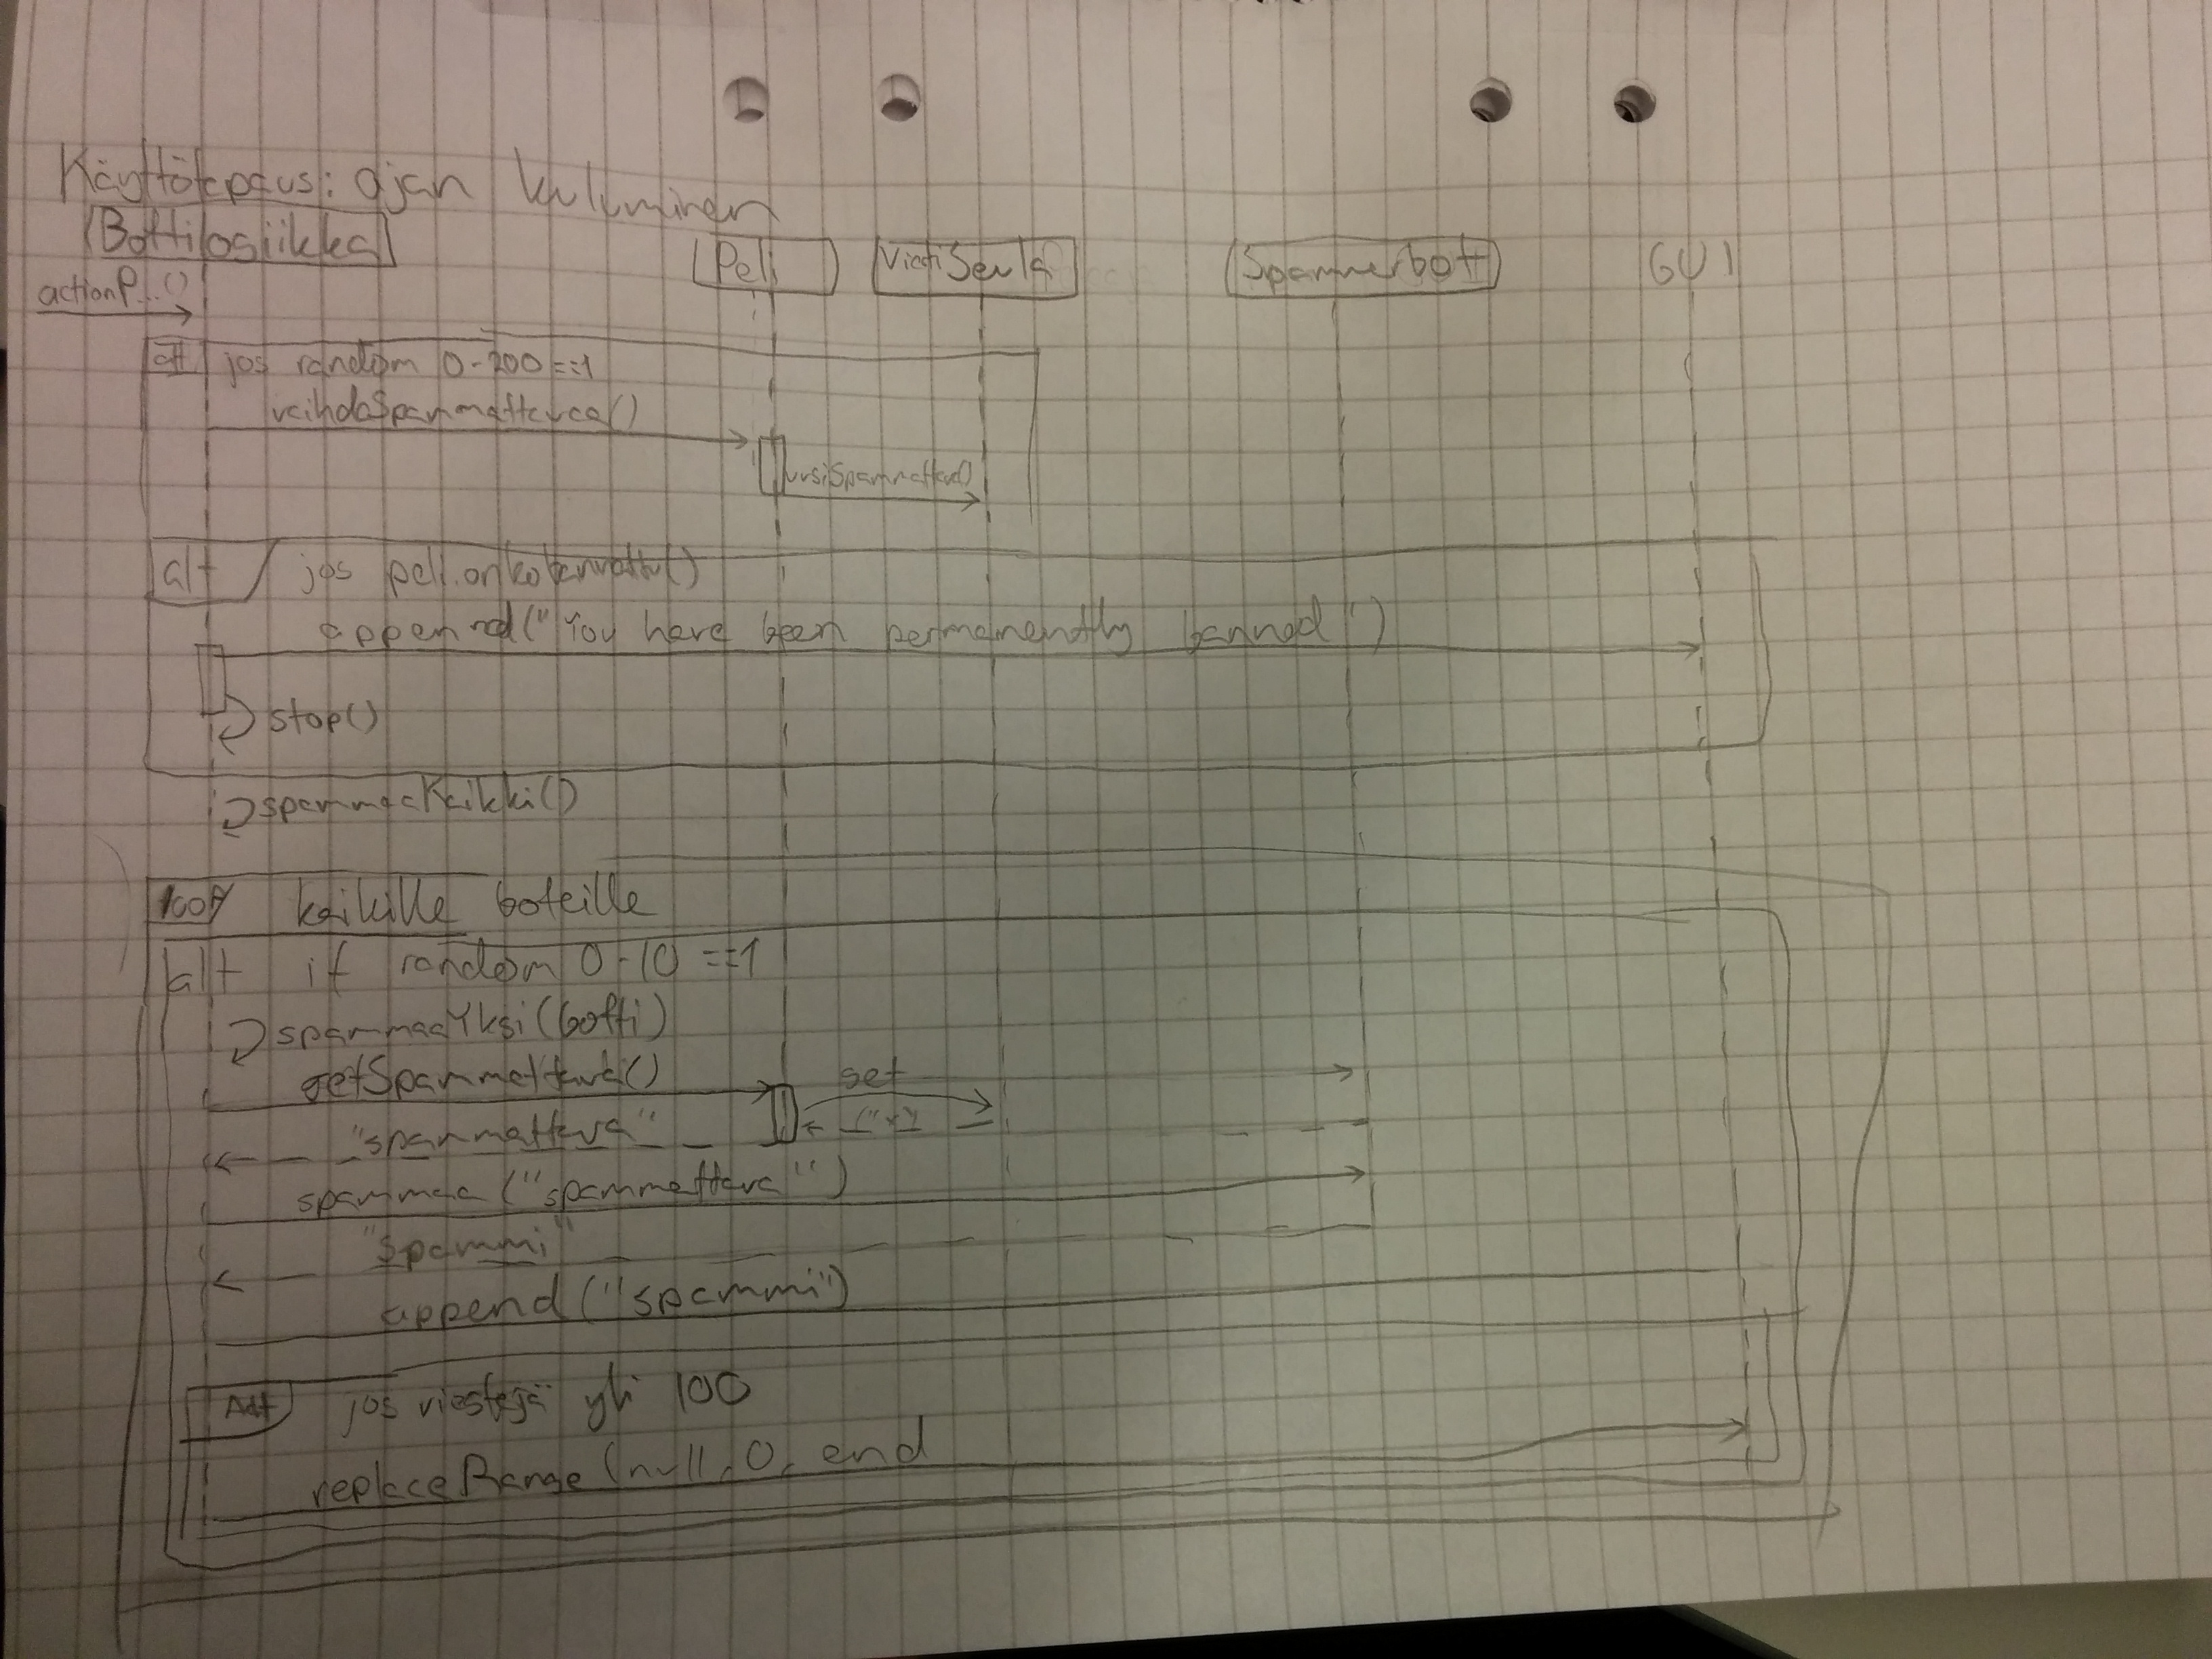 Käyttötapaus: ajan kuluminen
Bottilogiikka
Peli
ViestiSeula
Spammerbott
GUI
actionP...()
alt jos random 0-200 ==1
vaihdaSpammattavaa()
uusiSpammattava()
alt jos peli.onkobannattu()
append("You have been permamenently banned")
stop()
spammaaKaikki()
loop kaikille boteille
alt if random 0-10 ==1
spammaaYksi(botti)
getSpammattava()
get
"spammattava"
spammaa("spammattava")
"spammi"
append("spammi")
Alt jos viestejä yli 100
replaceRange(null, 0, end